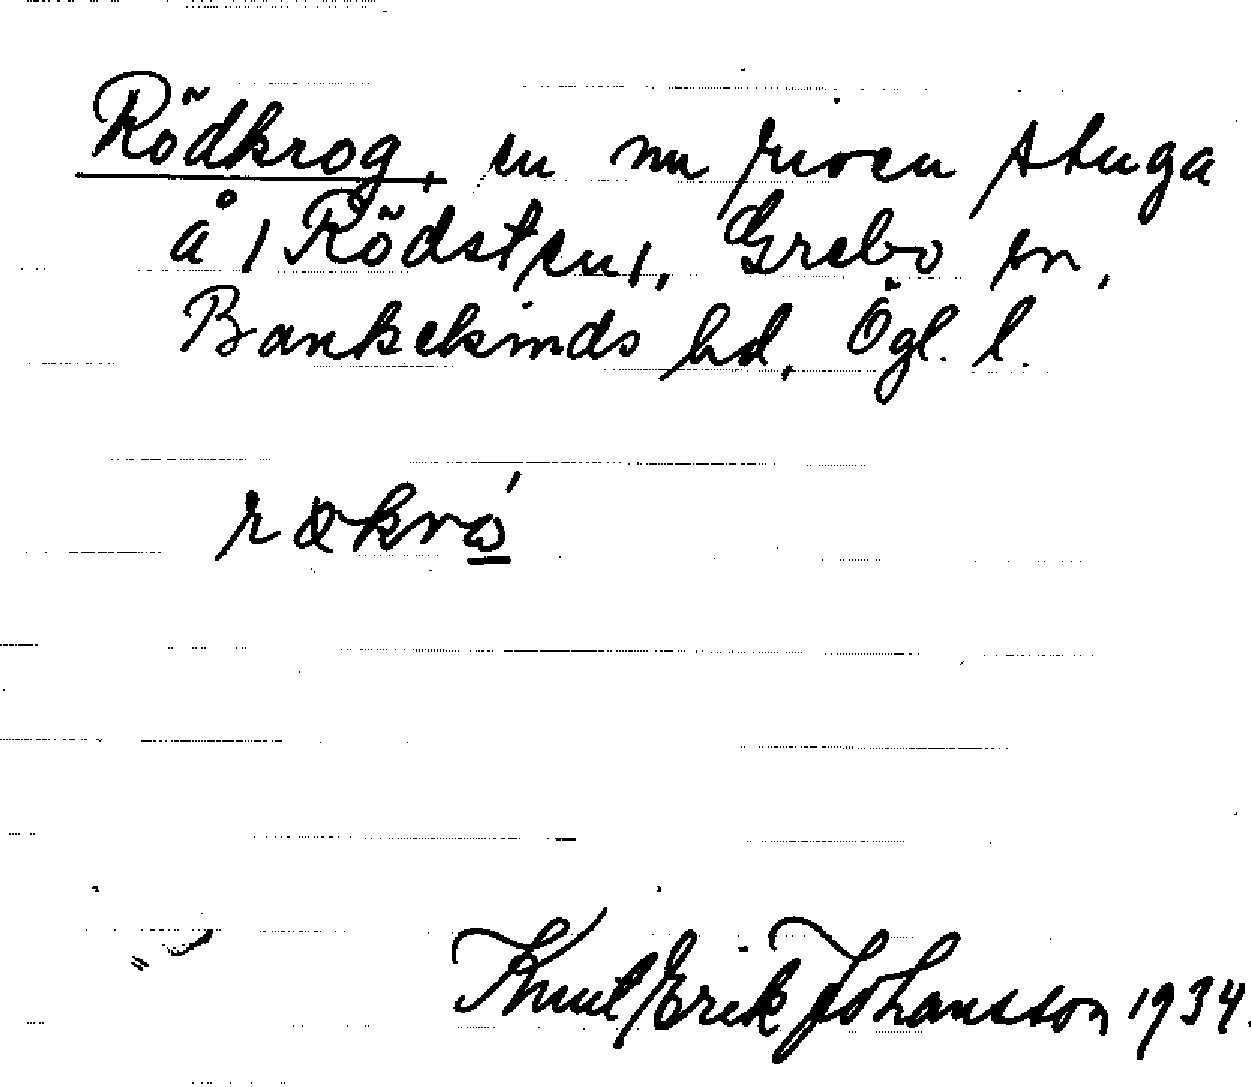 Rödkrog, en nu riven stuga
å /Rödsten/, Grebo sn,
Bankekinds hd, Ögl. l.
Knut Erik Johansson 1934.